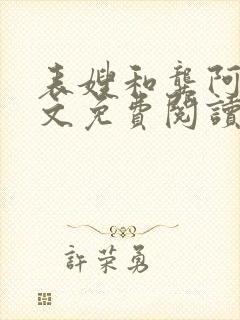 表嫂和龚阿
文免費閱讀
許荣勇